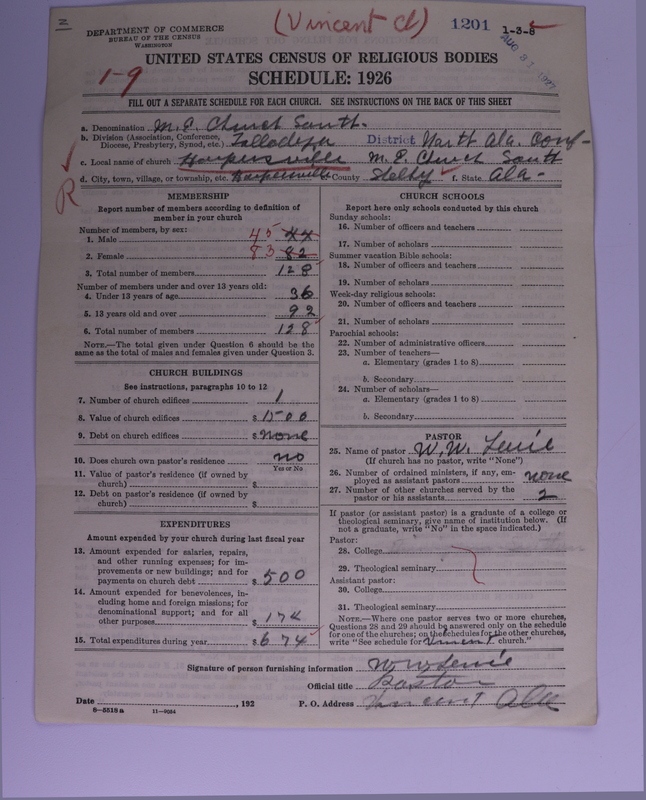 (Vincent ch)
1201
1-3-8
AUG 31 1927
DEPARTMENT OF COMMERCE
BUREAU OF THE CENSUS
WASHINGTON
1-9
UNITED STATES CENSUS OF RELIGIOUS BODIES
SCHEDULE: 1926
FILL OUT A SEPARATE SCHEDULE FOR EACH CHURCH. SEE INSTRUCTIONS ON THE BACK OF THIS SHEET
a. Denomination M. E. Church South.
b. Division (Association, Conference, Diocese, Presbytery, Synod, etc.) Talladega District North Ala. Conf-
c. Local name of church Harpersville M. E. Church South
d. City, town, village, or township, etc. Harpersville County Shelby f. State Ala-
R
MEMBERSHIP
Report number of members according to definition of
member in your church
Number of members, by sex:
1. Male 45 44
2. Female 83 82
3. Total number of members 128
Number of members under and over 13 years old:
4. Under 13 years of age 36
5. 13 years old and over 92
6. Total number of members 128
NOTE.—The total given under Question 6 should be the
same as the total of males and females given under Question 3.
CHURCH BUILDINGS
See instructions, paragraphs 10 to 12
7. Number of church edifices 1
8. Value of church edifices $ 1500
9. Debt on church edifices $ none
10. Does church own pastor's residence no
Yes or No
11. Value of pastor's residence (if owned by
church) $
12. Debt on pastor's residence (if owned by
church) $
EXPENDITURES
Amount expended by your church during last fiscal year
13. Amount expended for salaries, repairs,
and other running expenses; for im-
provements or new buildings; and for
payments on church debt $ 500
14. Amount expended for benevolences, in-
cluding home and foreign missions; for
denominational support; and for all
other purposes $ 174
15. Total expenditures during year $ 674
CHURCH SCHOOLS
Report here only schools conducted by this church
Sunday schools:
16. Number of officers and teachers
17. Number of scholars
Summer vacation Bible schools:
18. Number of officers and teachers
19. Number of scholars
Week-day religious schools:
20. Number of officers and teachers
21. Number of scholars
Parochial schools:
22. Number of administrative officers
23. Number of teachers—
a. Elementary (grades 1 to 8)
b. Secondary
24. Number of scholars—
a. Elementary (grades 1 to 8)
b. Secondary
PASTOR
25. Name of pastor W. W.
(If church has no pastor, write "None")
26. Number of ordained ministers, if any, em-
ployed as assistant pastors none
27. Number of other churches served by the
pastor or his assistants 2
If pastor (or assistant pastor) is a graduate of a college or
theological seminary, give name of institution below. (If
not a graduate, write "No" in the space indicated.)
Pastor:
28. College
29. Theological seminary
Assistant pastor:
30. College
31. Theological seminary
NOTE.—Where one pastor serves two or more churches,
Questions 28 and 29 should be answered only on the schedule
for one of the churches; on the schedules for the other churches,
write "See schedule for Vincent church."
Signature of person furnishing information W W
Official title Pastor
Date , 192 P. O. Address Vincent Ala
8-5518 a 11-9034